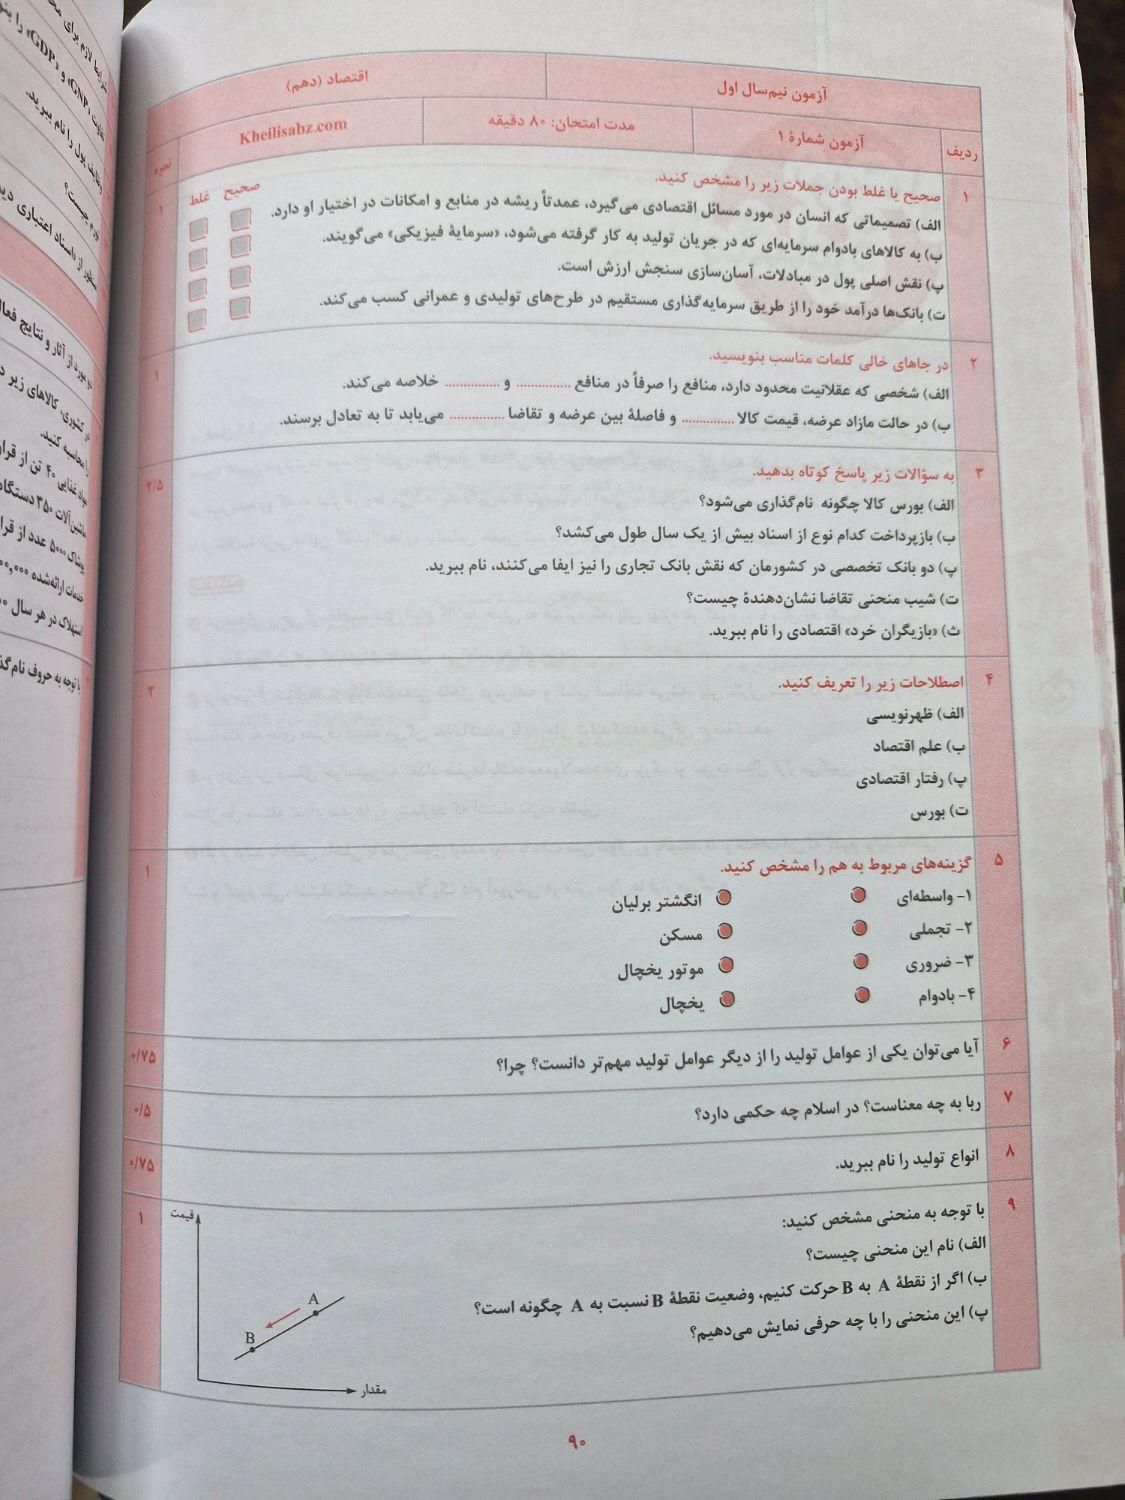 آزمون نیم‌سال اول
اقتصاد (دهم)
ردیف
آزمون شمارهٔ ۱
مدت امتحان: ۸۰ دقیقه
Kheilisabz.com
نمره
۱
صحیح یا غلط بودن جملات زیر را مشخص کنید.
صحیح غلط
۱
الف) تصمیماتی که انسان در مورد مسائل اقتصادی می‌گیرد، عمدتاً ریشه در منابع و امکانات در اختیار او دارد.
ب) به کالاهای بادوام سرمایه‌ای که در جریان تولید به کار گرفته می‌شود، «سرمایهٔ فیزیکی» می‌گویند.
پ) نقش اصلی پول در مبادلات، آسان‌سازی سنجش ارزش است.
ت) بانک‌ها درآمد خود را از طریق سرمایه‌گذاری مستقیم در طرح‌های تولیدی و عمرانی کسب می‌کند.
۲
در جاهای خالی کلمات مناسب بنویسید.
۱
الف) شخصی که عقلانیت محدود دارد، منافع را صرفاً در منافع .............. و .............. خلاصه می‌کند.
ب) در حالت مازاد عرضه، قیمت کالا .............. و فاصلهٔ بین عرضه و تقاضا .............. می‌یابد تا به تعادل برسند.
۳
به سؤالات زیر پاسخ کوتاه بدهید.
۲/۵
الف) بورس کالا چگونه نام‌گذاری می‌شود؟
ب) بازپرداخت کدام نوع از اسناد بیش از یک سال طول می‌کشد؟
پ) دو بانک تخصصی در کشورمان که نقش بانک تجاری را نیز ایفا می‌کنند، نام ببرید.
ت) شیب منحنی تقاضا نشان‌دهندهٔ چیست؟
ث) «بازیگران خرد» اقتصادی را نام ببرید.
۴
اصطلاحات زیر را تعریف کنید.
۲
الف) ظهرنویسی
ب) علم اقتصاد
پ) رفتار اقتصادی
ت) بورس
۵
گزینه‌های مربوط به هم را مشخص کنید.
۱
۱- واسطه‌ای
انگشتر برلیان
۲- تجملی
مسکن
۳- ضروری
موتور یخچال
۴- بادوام
یخچال
۶
آیا می‌توان یکی از عوامل تولید را از دیگر عوامل تولید مهم‌تر دانست؟ چرا؟
۰/۷۵
۷
ربا به چه معناست؟ در اسلام چه حکمی دارد؟
۰/۵
۸
انواع تولید را نام ببرید.
۰/۷۵
۹
با توجه به منحنی مشخص کنید:
۱
الف) نام این منحنی چیست؟
ب) اگر از نقطهٔ A به B حرکت کنیم، وضعیت نقطهٔ B نسبت به A چگونه است؟
پ) این منحنی را با چه حرفی نمایش می‌دهیم؟
قیمت
A
B
مقدار
۹۰
«GNP» و «GDP» را
وظایف پول را نام ببرید.
تورم چیست؟
منظور از «اسناد اعتباری
دو مورد از آثار و نتایج
در کشوری، کالاهای زیر
را محاسبه کنید.
مواد غذایی ۴۰ تن از قرار
ماشین‌آلات ۳۵۰ دستگاه
پوشاک ۵۰۰۰ عدد از قرار
خدمات ارائه‌شده
استهلاک در هر سال
با توجه به حروف